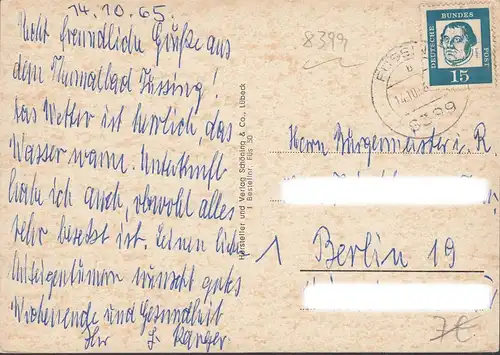 14.10.65.
Recht freundliche Grüße aus
dem Thermalbad Füssing!
Das Wetter ist herrlich, das
Wasser warm. Unterkunft
habe ich auch, obwohl alles
sehr besetzt ist. Einen lieben
wünscht gutes
Wochenende und Gesundheit
Ihr Ranger.
Hersteller und Verlag Schöning & Co., Lübeck
Bestellnr. Füs 30
8399
FÜSSI
b
14.10.6
8399
DEUTSCHE BUNDESPOST
15
Herrn Bürgermeister i. R.
1 Berlin 19
7€